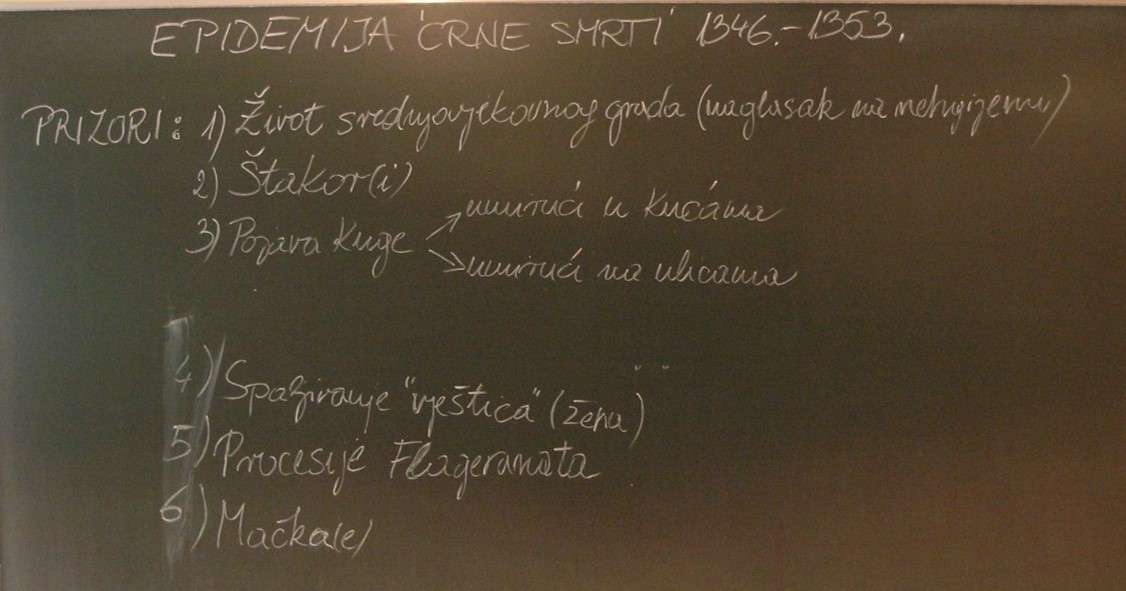 EPIDEMIJA CRNE SMRTI 1346.-1353.
PRIZORI: 1) Život srednjovjekovnog grada (naglasak na nehigijenu)
2) Štakor(i)
3) Pojava kuge
umirući u kućama
umirući na ulicama
4) Spaljivanje "vještica" (žena)
5) Procesije Flageranata
6) Mačka(e)